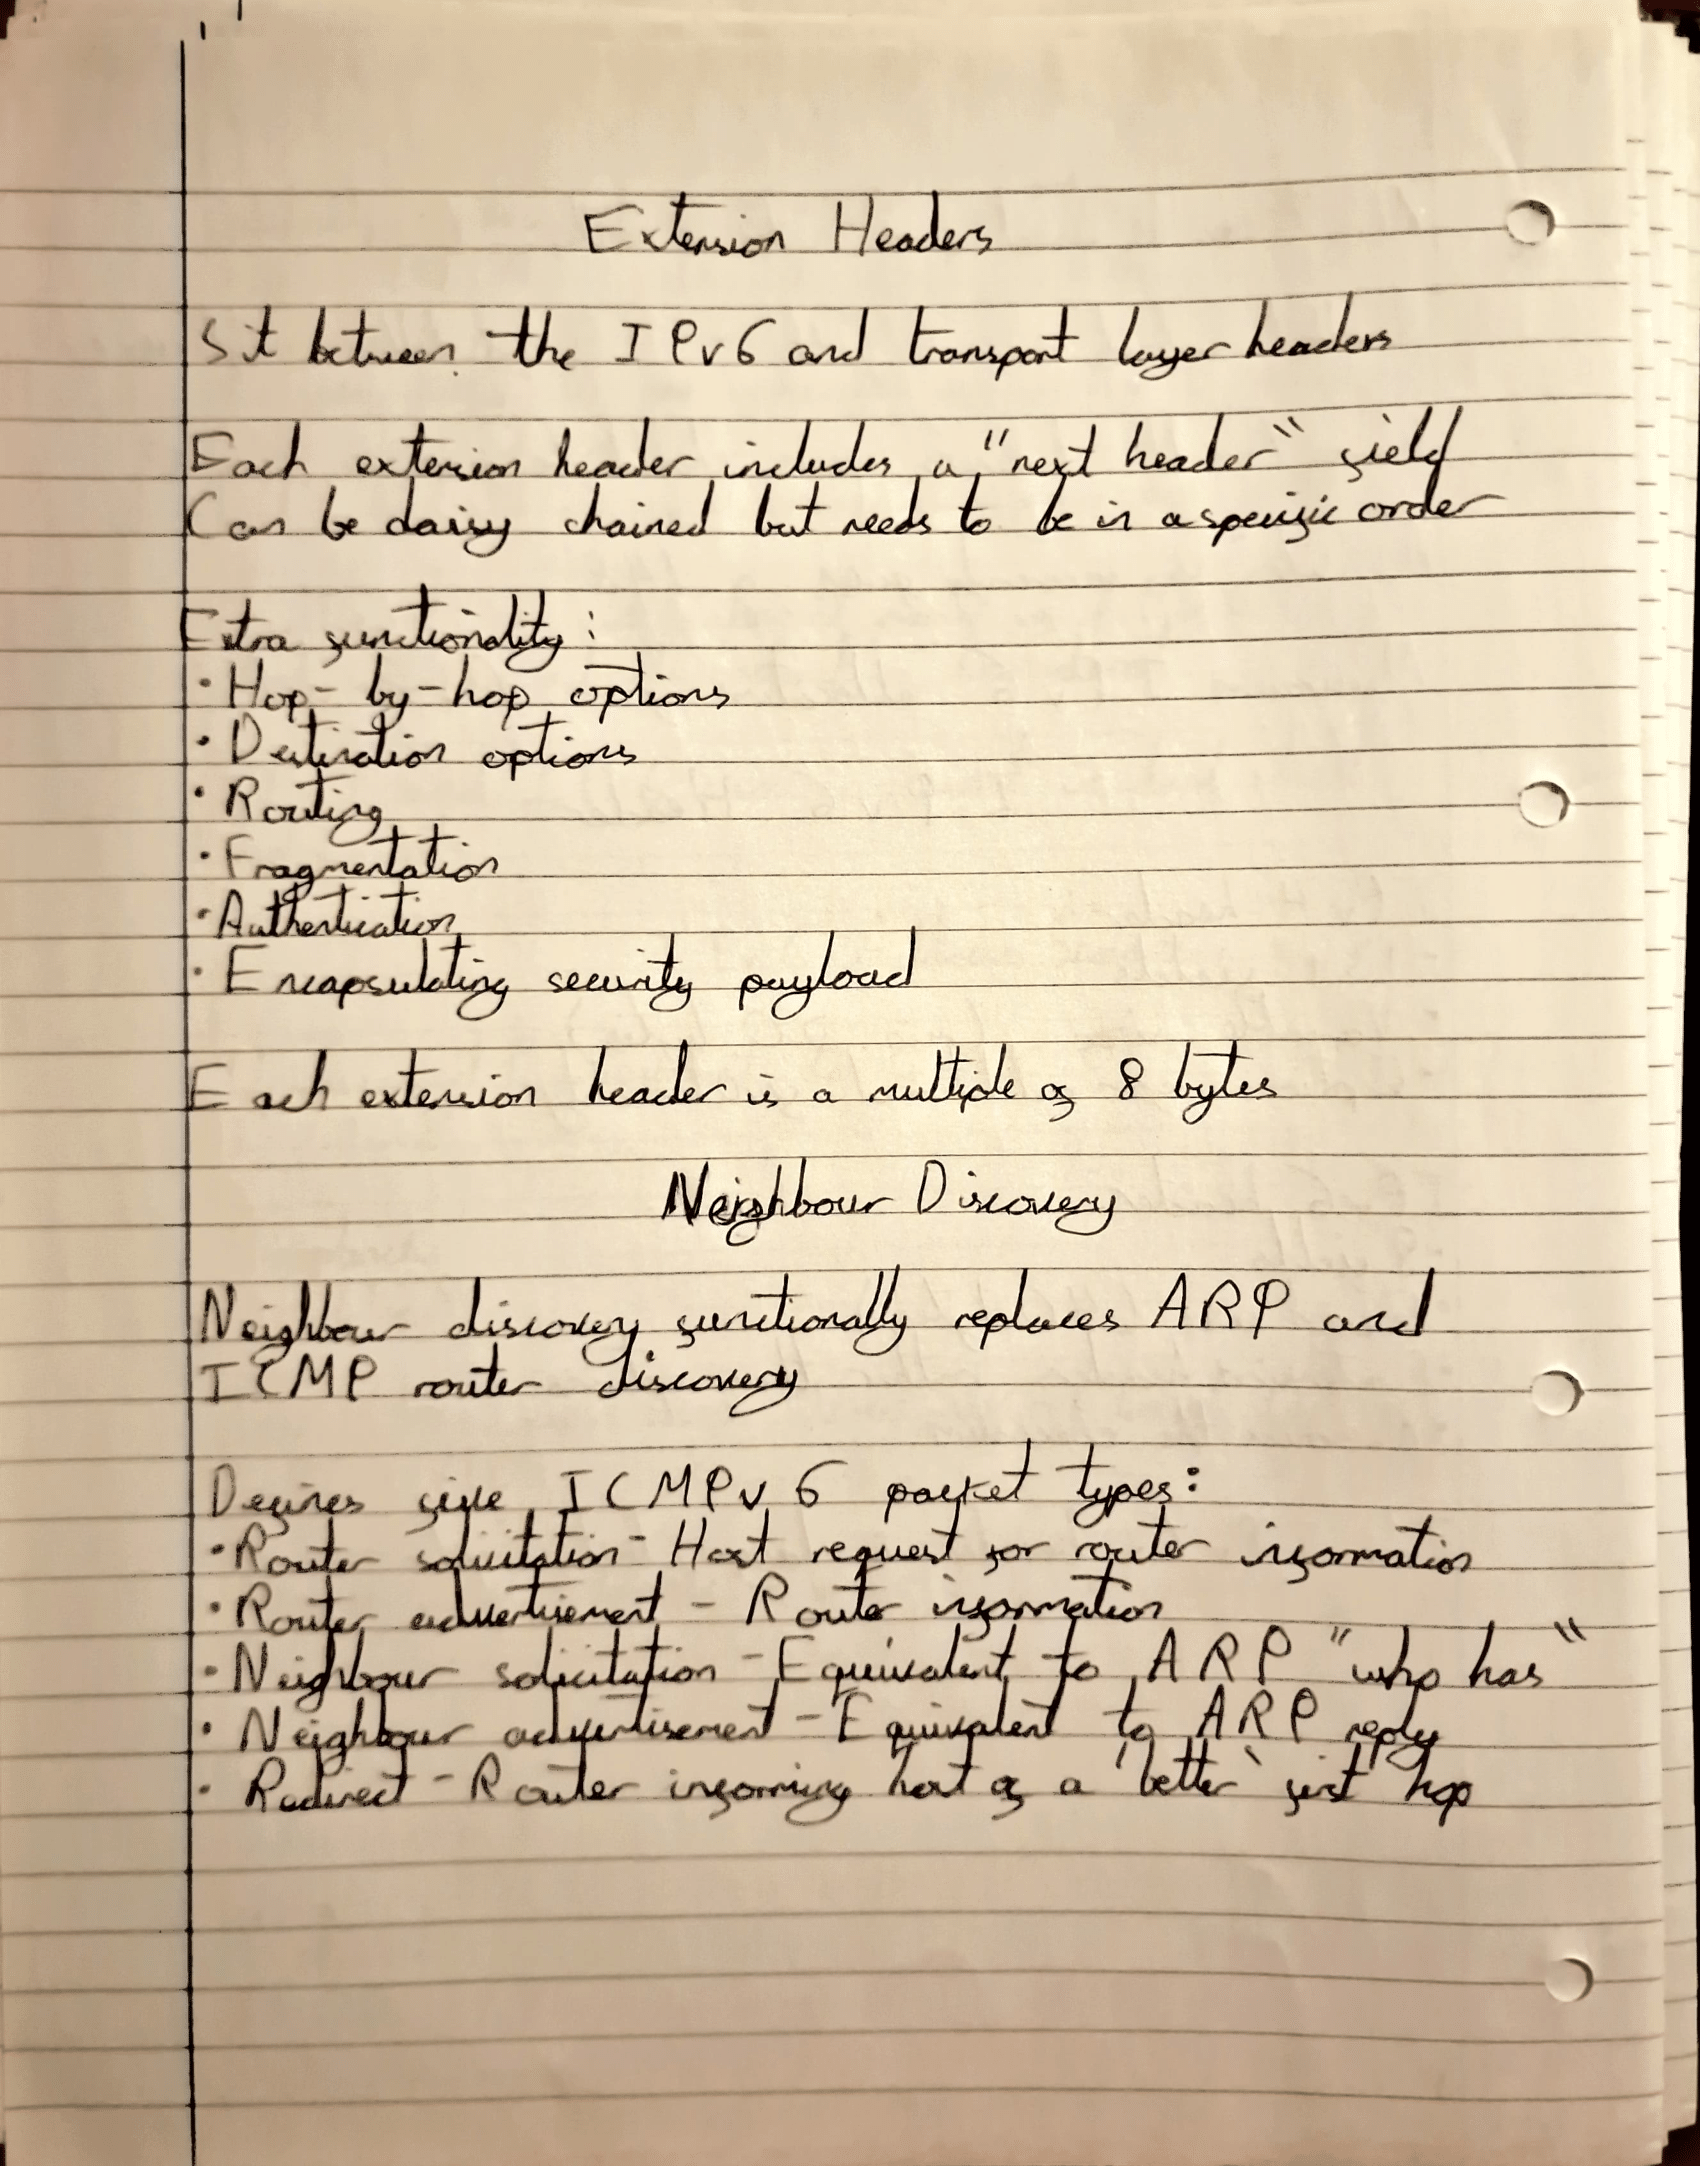 Extension Headers
Sit between the IPv6 and transport layer headers
Each extension header includes a "next header" field
Can be daisy chained but needs to be in a specific order
Extra functionality:
• Hop-by-hop options
• Destination options
• Routing
• Fragmentation
• Authentication
• Encapsulating security payload
Each extension header is a multiple of 8 bytes
Neighbour Discovery
Neighbour discovery functionally replaces ARP and
ICMP router discovery
Defines five ICMPv6 packet types:
• Router solicitation - Host request for router information
• Router advertisement - Router information
• Neighbour solicitation - Equivalent to ARP "who has"
• Neighbour advertisement - Equivalent to ARP reply
• Redirect - Router informing host of a 'better' first hop